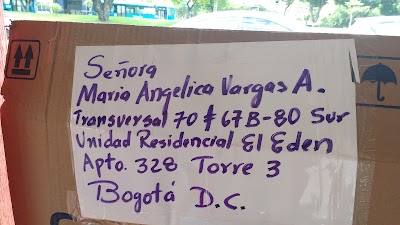 Señora
Maria Angelica Vargas A.
Transversal 70 # 67B-80 Sur
Unidad Residencial El Eden
Apto. 328 Torre 3
Bogotá D.C.